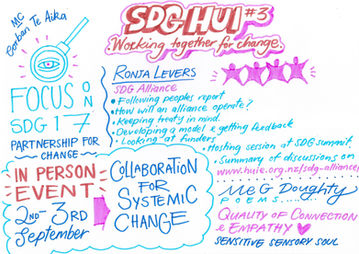 MC
Eorban Te Aika
SDG HUI #3
Working together for change.
FOCUS ON
SDG 17
PARTNERSHIP FOR
CHANGE
RONJA LEVERS
SDG Alliance
• Following peoples report
• How will an alliance operate?
• Keeping treaty in mind
• Developing a model & getting feedback
• Looking at funders
• Hosting session at SDG summit
• Summary of discussions on
www.huie.org.nz/sdg-alliance
IN PERSON
EVENT
2ND - 3RD
September
COLLABORATION
FOR
SYSTEMIC
CHANGE
MEG Doughty
POEMS
QUALITY OF CONNECTION
& EMPATHY
SENSITIVE SENSORY SOUL